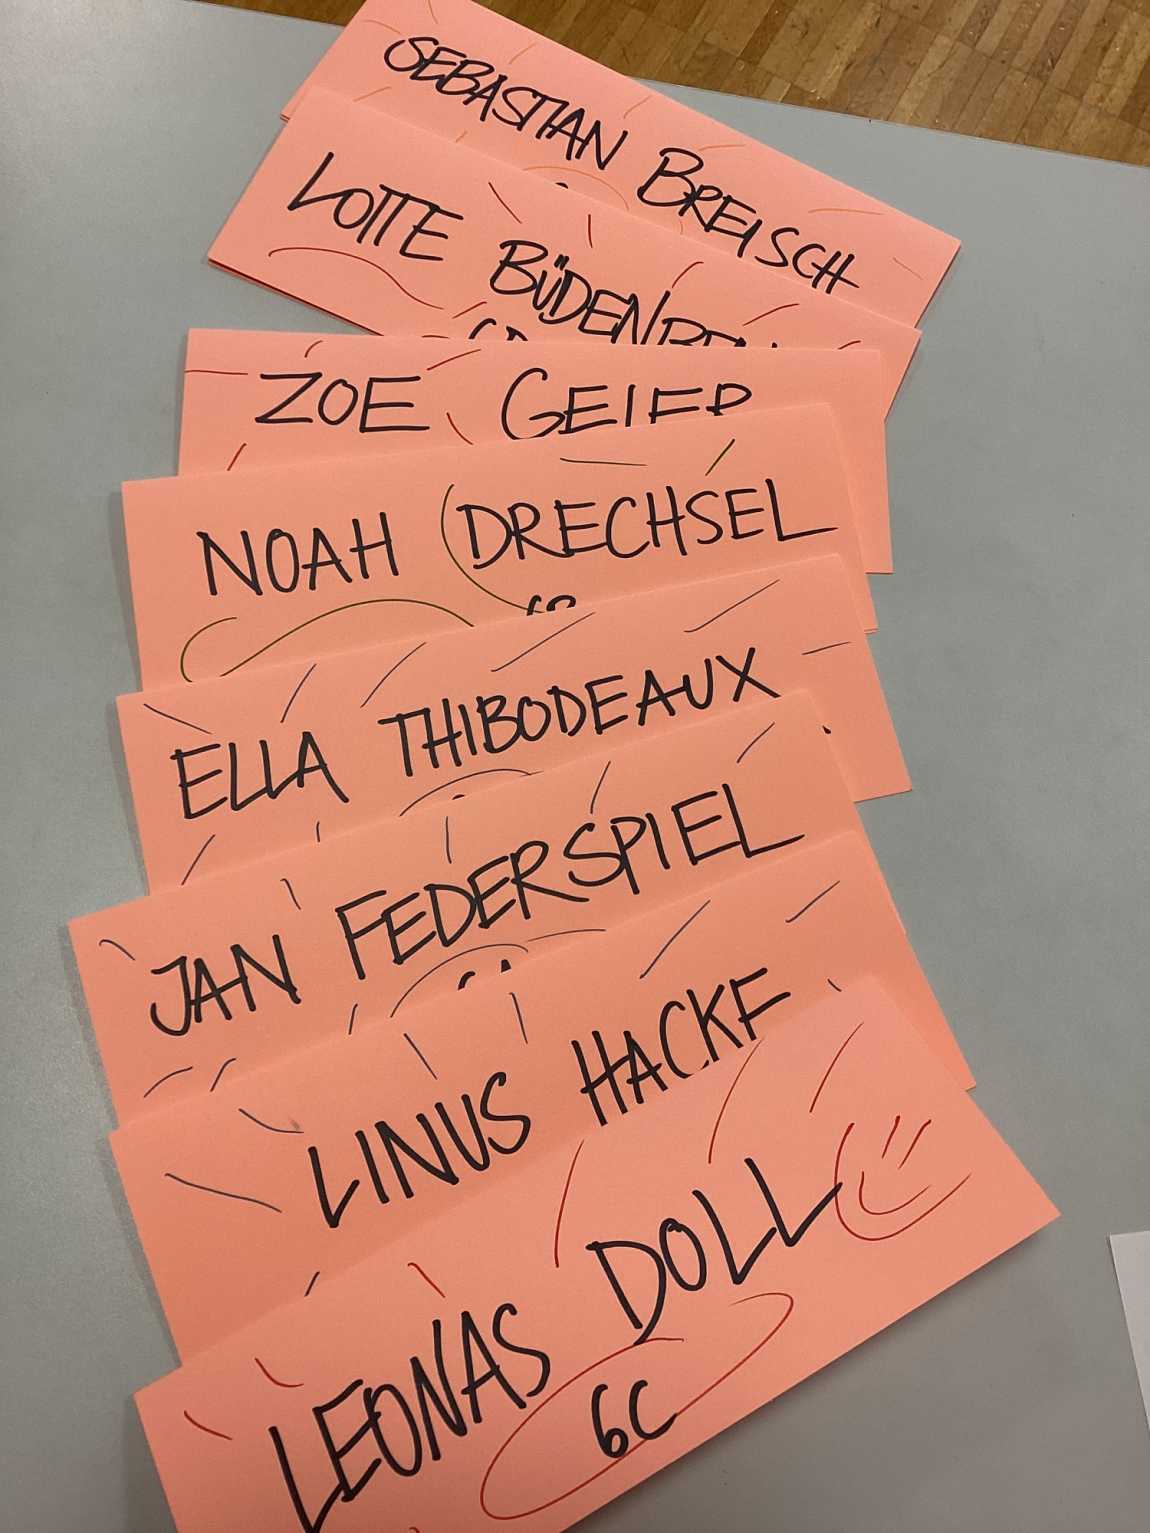 SEBASTIAN BREISCH
LOTTE
ZOE GEIER
NOAH DRECHSEL
ELLA THIBODEAUX
JAN FEDERSPIEL
6A
LINUS HACKE
LEONAS DOLL
6C